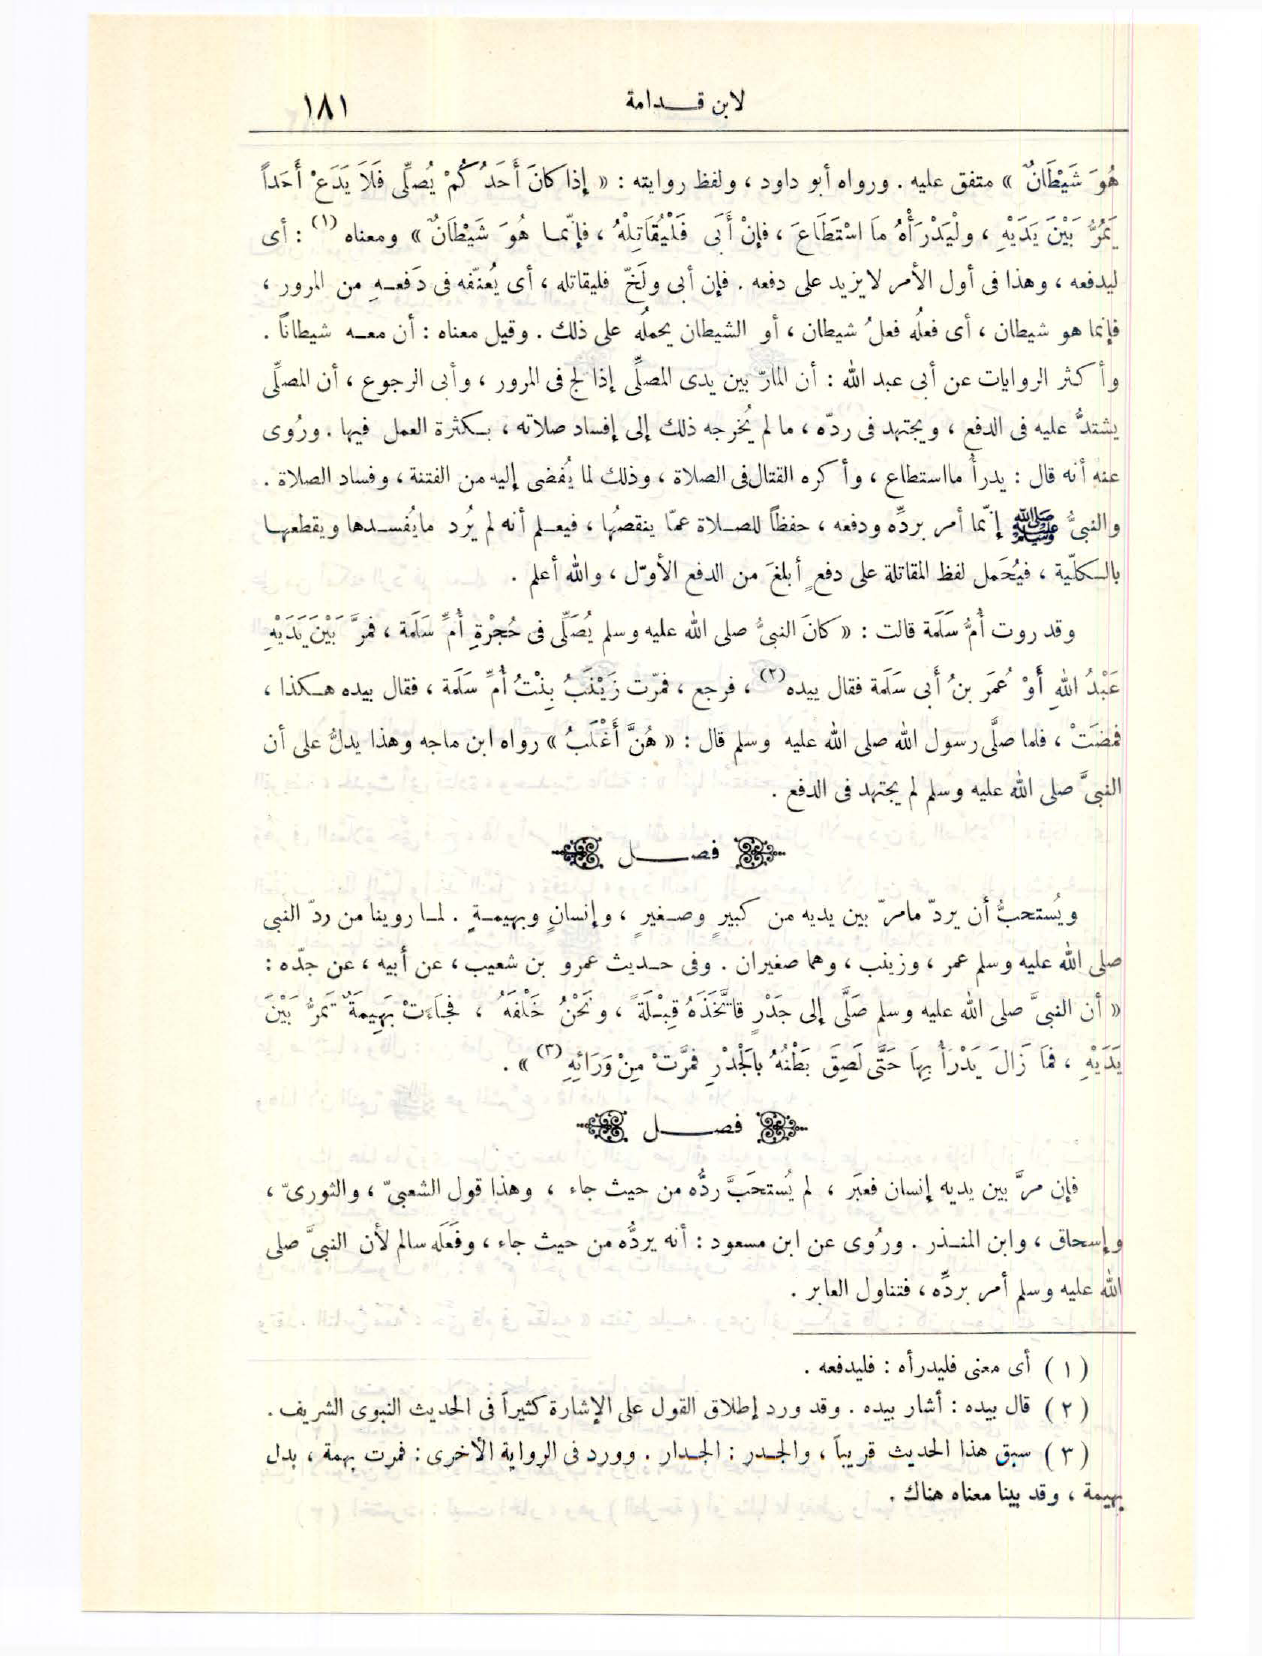 لابن قدامة ١٨١
هُوَ شَيْطَانٌ » متفق عليه . ورواه أبو داود ، ولفظ روايته : « إذا كانَ أَحَدُكُمْ يُصلِّى فَلاَ يَدَعْ أَحَداً
يَمُرُّ بَيْنَ يَدَيْهِ ، ولْيَدْرَأْهُ ماَ اسْتَطَاعَ ، فإنْ أَبَى فَلْيُقَاتِلْهُ ، فإنّما هُوَ شَيْطَانٌ » ومعناه (١) : أى
ليدفعه ، وهذا فى أول الأمر لا يزيد على دفعه . فإن أبى ولَجّ فليقاتله ، أى يُعنّفه فى دَفعهِ من المرور ،
فإنما هو شيطان ، أى فعلُه فعلُ شيطان ، أو الشيطان يحملُه على ذلك . وقيل معناه : أن معه شيطاناً .
وأكثر الروايات عن أبى عبد الله : أن المارّ بين يدى المصلِّى إذا لج فى المرور ، وأبى الرجوع ، أن المصلِّى
يشتدُّ عليه فى الدفع ، ويجتهد فى ردّه ، ما لم يُخرجه ذلك إلى إفساد صلاته ، بكثرة العمل فيها . ورُوى
عنه أنه قال : يدرأ ما استطاع ، وأكره القتال فى الصلاة ، وذلك لما يُفضى إليه من الفتنة ، وفساد الصلاة .
والنبىُّ ﷺ إنّما أمر بردِّه ودفعه ، حفظاً للصلاة عمّا ينقصُها ، فيعلم أنه لم يُرد ما يُفسدها ويقطعها
بالكلّية ، فيُحمَل لفظ المقاتلة على دفعٍ أبلغَ من الدفع الأوّل ، والله أعلم .
وقد روت أُمُّ سَلَمة قالت : « كانَ النبىُّ صلى الله عليه وسلم يُصَلِّى فى حُجْرةِ أُمِّ سَلَمة ، فمرَّ بَيْنَ يَدَيْهِ
عَبْدُ اللهِ أَوْ عُمَر بنُ أَبى سَلَمة فقال بيده (٢) ، فرجع ، فمرّت زَيْنَبُ بِنْتُ أُمِّ سَلَمة ، فقال بيده هكذا ،
فمضَتْ ، فلما صلَّى رسول الله صلى الله عليه وسلم قال : « هُنَّ أَغْلَبُ » رواه ابن ماجه وهذا يدلُّ على أن
النبىَّ صلى الله عليه وسلم لم يجتهد فى الدفع .
فصل
ويُستحبُّ أن يردّ ما مرّ بين يديه من كبيرٍ وصغيرٍ ، وإنسانٍ وبهيمةٍ . لما روينا من ردّ النبى
صلى الله عليه وسلم عمر ، وزينب ، وهما صغيران . وفى حديث عمرو بن شعيب ، عن أبيه ، عن جدّه :
« أن النبىَّ صلى الله عليه وسلم صَلَّى إلى جَدْرٍ فاتَّخَذَهُ قِبْلَةً ، ونَحْنُ خَلْفَهُ ، فجاءتْ بَهِيمَةٌ تَمرُّ بَيْنَ
يَدَيْهِ ، فمَا زَالَ يَدْرأُ بِهَا حَتَّى لَصِقَ بَطْنُهُ بالجَدْرِ فمرَّتْ مِنْ وَرَائِهِ (٣) » .
فصل
فإن مرَّ بين يديه إنسان فعبَر ، لم يُستحَبَّ ردُّه من حيث جاء ، وهذا قول الشعبىّ ، والثورىّ ،
وإسحاق ، وابن المنذر . ورُوى عن ابن مسعود : أنه يردُّه من حيث جاء ، وفَعَله سالم لأن النبىَّ صلى
الله عليه وسلم أمر بردِّه ، فتناول العابر .
( ١ ) أى معنى فليدرأه : فليدفعه .
( ٢ ) قال بيده : أشار بيده . وقد ورد إطلاق القول على الإشارة كثيراً فى الحديث النبوى الشريف .
( ٣ ) سبق هذا الحديث قريباً ، والجدر : الجدار . وورد فى الرواية الأخرى : فمرت بهمة ، بدل
بهيمة ، وقد بينا معناه هناك .